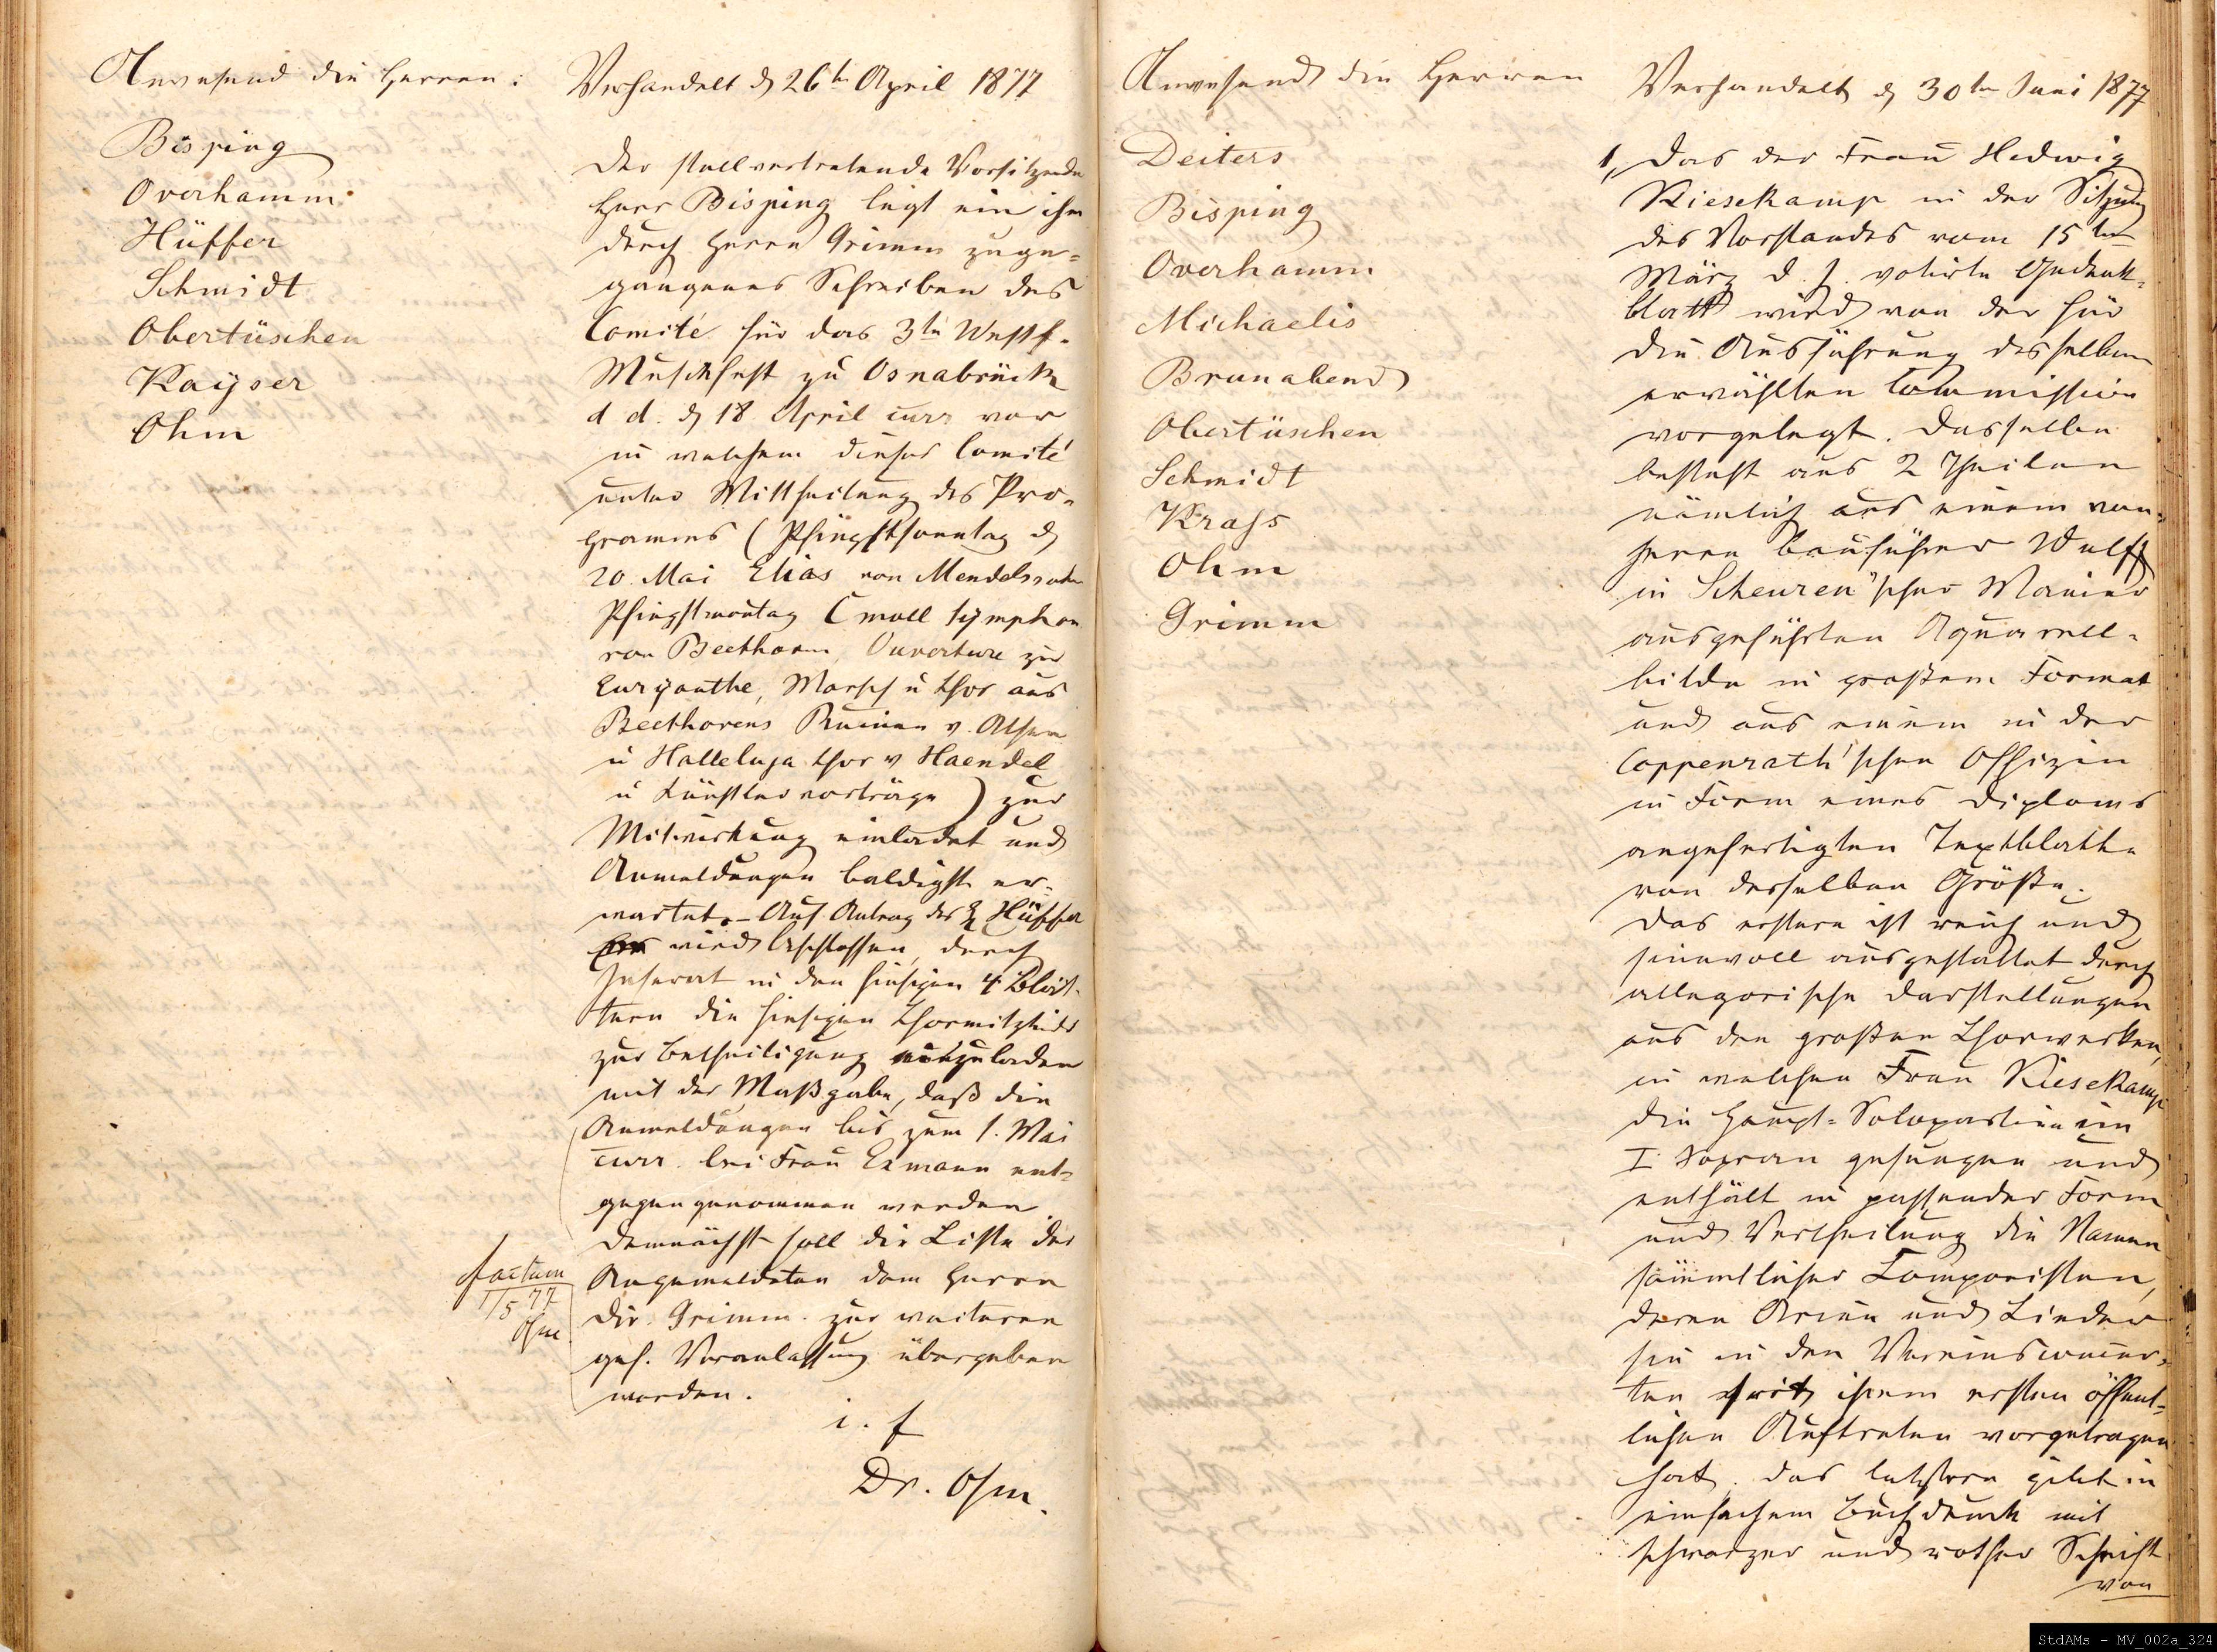 Anwesend die Herren:
Bisping
Overhamm
Hüffer
Schmidt
Obertüschen
Kayser
Ohm
Verhandelt d 26ten April 1877
Der stellvertretende Vorsitzende
Herr Bisping legt ein ihm
durch Herrn Grimm zuge-
gangenes Schreiben des
Comité für das 3te Westf.
Musikfest zu Osnabrück
d d. d 18. April curr vor
in welchem dieses Comité
unter Mittheilung des Pro-
gramms (Pfingstsonntag d
20. Mai Elias von Mendelssohn
Pfingstmontag C moll Symphon
von Beethoven, Ouverture zu
Euryanthe, Marsch u Chor aus
Beethovens Ruinen v. Athen
u Halleluja Chor v Haendel
u Künstlervorträge) zur
Mitwirkung einladet und
Anmeldungen baldigst er-
wartet. – Auf Antrag des H Hüffer
wird beschlossen, durch
Inserat in den hiesigen 4 Blät-
tern die hiesigen Chormitglieder
zur Betheiligung einzuladen
mit der Maßgabe, daß die
Anmeldungen bis zum 1. Mai
curr. bei Frau Exmann ent-
gegengenommen werden
Demnächst soll die Liste der
Angemeldeten dem Herrn
Dir. Grimm zur weiteren
gef. Veranlassung übergeben
werden.
factum
1/5 77
Ohm
i. f
Dr. Ohm.
Anwesend die Herren
Deiters
Bisping
Overhamm
Michaelis
Brunabend
Obertüschen
Schmidt
Krass
Ohm
Grimm
Verhandelt d 30ten Juni 1877
1, Das der Frau Hedwig
Kiesekamp in der Sitzung
des Vorstandes vom 15ten
März d. J. votirte Gedenk-
blatt wird von der für
die Ausführung desselben
erwählten Commission
vorgelegt. Dasselbe
besteht aus 2 Theilen
nämlich aus einem von
Herrn Bauführer Wulff
in Scheuren'scher Manier
ausgeführten Aquarell-
bilde in großem Format
und aus einem in der
Coppenrath'schen Offizin
in Form eines Diploms
angefertigten Textblatte
von derselben Größe.
Das erstere ist reich und
sinnvoll ausgestattet durch
allegorische Darstellungen
aus den großen Chorwerken,
in welchen Frau Kiesekamp
die Haupt-Solopartien im
I. Sopran gesungen und
enthält in passender Form
und Vertheilung die Namen
sämmtlicher Componisten,
deren Arien und Lieder
sie in den Vereinsconcer-
ten seit ihrem ersten öffent-
lichen Auftreten vorgetragen
hat. Das letztere gibt in
einfachem Buchdruck mit
schwarzer und rother Schrift
von
StdAMs - MV_002a_324